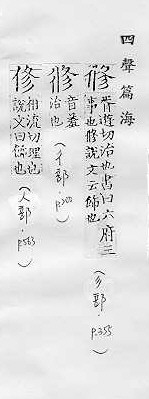 四聲篇海
修
胥遊切治也書曰六府三
事也修說文云飾也
(彡部·P.355)
音養
治也
(彳部·P.300)
修
相流切理也
說文曰飾也
(人部·P.563)